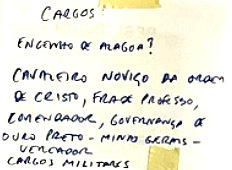 CARGOS:
ENGENHO DE ALAGOA?
CAVALEIRO NOVIÇO DA ORDEM
DE CRISTO, FRADE PROFESSO,
COMENDADOR, GOVERNANÇA DE
OURO PRETO - MINAS GERAIS -
VEREADOR
CARGOS MILITARES